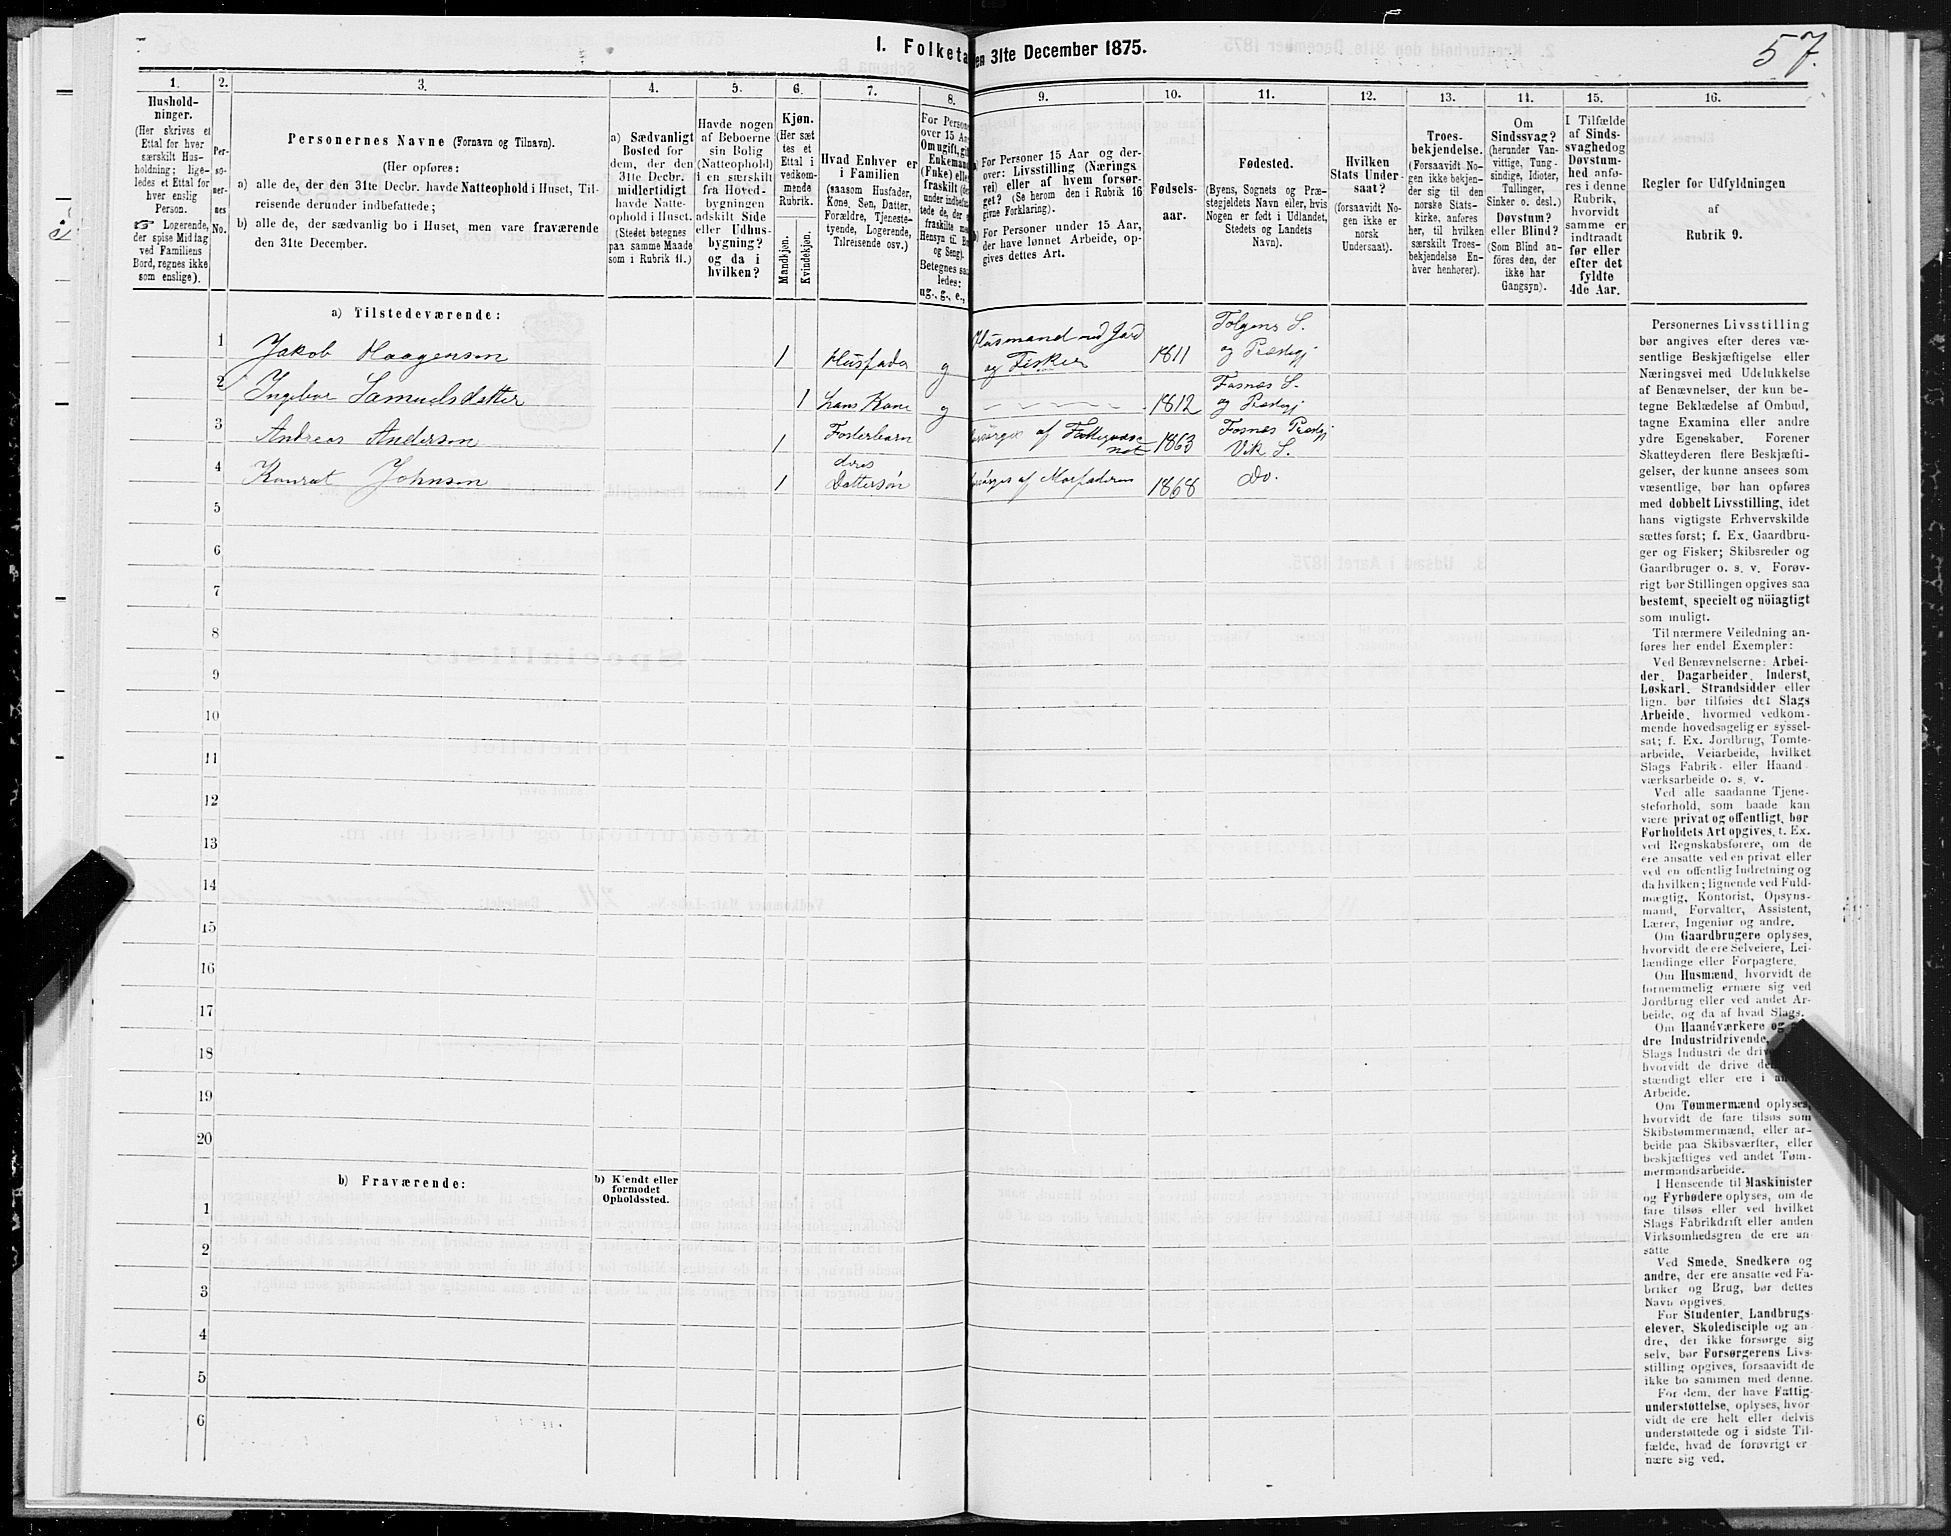 I. Folketa
en 31te December 1875.
57.
1.
2.
3.
4.
5.
6.
7.
8.
9.
10.
11.
12.
13.
14.
15.
16.
Hushold-
ninger.
(Her skrives et
Ettal for hver
særskilt Hus-
holdning; lige-
ledes et Ettal for
hver enslig
Person.
☞ Logerende,
der spise Middag
ved Familiens
Bord, regnes ikke
som enslige).
Per-
so-
ner-
nes
No.
Personernes Navne (Fornavn og Tilnavn).
(Her opføres:
a) alle de, der den 31te Decbr. havde Natteophold i Huset, Til-
reisende derunder indbefattede;
b) alle de, der sædvanlig bo i Huset, men vare fraværende
den 31te December.
a) Sædvanligt
Bosted for
dem, der den
31te Decbr.
midlertidigt
havde Natte-
ophold i Huset.
(Stedet betegnes
paa samme Maade
som i Rubrik 11.)
Havde nogen
af Beboerne
sin Bolig
(Natteophold)
i en særskilt
fra Hoved-
bygningen
adskilt Side
eller Udhus-
bygning?
og da i
hvilken?
Kjøn.
(Her sæt
tes et
Ettal i
vedkom-
mende
Rubrik.
Mandkjøn.
Kvindekjøn.
Hvad Enhver er
i Familien
(saasom Husfader,
Kone, Søn, Datter,
Forældre, Tjeneste-
tyende, Logerende,
Tilreisende osv.)
For Persone
over 15 Aa
Om ugift, gif
Enkemand
(Enke) elle
fraskilt (de
under indbefat
tede de, der e
fraskilte me
Hensyn til Bo
og Seng).
Betegnes saa
ledes:
ug., g., e.,
a) For Personer 15 Aar og der-
over: Livsstilling (Nærings
vei) eller af hvem forsør-
get? (Se herom den i Rubrik 16
givne Forklaring).
b) For Personer under 15 Aar,
der have lønnet Arbeide, op-
gives dettes Art.
Fødsels-
aar.
Fødested.
(Byens, Sognets og Præ-
stegjeldets Navn eller, hvis
Nogen er født i Udlandet,
Stedets og Landets
Navn).
Hvilken
Stats Under-
saat?
(forsaavidt No-
gen ikke er
norsk
Undersaat).
Troes-
bekjendelse.
(Forsaavidt No-
gen ikke bekjen-
der sig til den
norske Stats-
kirke, anføres
her, til hvilken
særskilt Troes-
bekjendelse En-
hver henhører).
Om
Sindssvag?
(herunder Van-
vittige, Tung-
sindige, Idioter,
Tullinger,
Sinker o. desl.)
Døvstum?
eller Blind?
(Som Blind an-
føres den, der
ikke har
Gangsyn).
I Tilfælde
af Sinds-
svaghed og
Døvstum-
hed anfø-
res i denne
Rubrik,
hvorvidt
samme er
indtraadt
før eller
efter det
fyldte
4de Aar.
Regler for Udfyldningen
af
Rubrik 9.
a) Tilstedeværende:
1 Jakob Haagenson 1 Husfader g Husmand med Jord og Fisker 1811 Folgens S. og Præstegj
2 Ingebor Samuelsdatter 1 hans Kone g 1812 Fosnæs S. og Præstegj
3 Andreas Anderson 1 Fosterbarn 1863 Fosnæs Præstgj Vik S.
4 Konrat Johnson 1 deres Dattersøn forsørges af Morfaderen 1868 Do.
5
6
7
8
9
10
11
12
13
14
15
16
17
18
19
20
b) Fraværende:
b) Kjendt eller
formodet
Opholdssted.
1
2
3
4
5
6
Personernes Livsstilling
bør angives efter deres væ-
sentlige Beskjæftigelse eller
Næringsvei med Udelukkelse
af Benævnelser, der kun be-
tegne Beklædelse af Ombud,
tagne Examina eller andre
ydre Egenskaber. Forener
Skatteyderen flere Beskjæfti-
gelser, der kunne ansees som
væsentlige, bør han opføres
med dobbelt Livsstilling, idet
hans vigtigste Erhvervskilde
sættes først; f. Ex. Gaardbru-
ger og Fisker; Skibsreder og
Gaardbruger o. s. v. Forøv-
rigt bør Stillingen opgives saa
bestemt, specielt og nöiagtigt
som muligt.
Til nærmere Veiledning an-
føres her endel Exempler:
Ved Benævnelserne: Arbei-
der, Dagarbeider, Inderst,
Løskarl, Strandsidder eller
lign. bør tilføies det Slags
Arbeide, hvormed vedkom-
mende hovedsagelig er syssel-
sat; f. Ex. Jordbrug, Tomte-
arbeide, Veiarbeide, hvilket
Slags Fabrik- eller Haand
værksarbeide o. s. v.
Ved alle saadanne Tjene-
steforhold, som baade kan
være privat og offentligt, bør
Forholdets Art opgives, t. Ex.
ved Regnskabsførere, om de
ere ansatte ved en privat eller
ved en offentlig Indretning og
da hvilken; lignende ved Fuld-
mægtig, Kontorist, Opsyns-
mand, Forvalter, Assistent,
Lærer, Ingeniør og andre.
Om Gaardbrugere oplyses,
hvorvidt de ere Selveiere, Lei-
lændinge eller Forpagtere.
Om Husmænd, hvorvidt de
fornemmelig ernære sig ved
Jordbrug eller ved andet Ar-
beide, og da af hvad Slags.
Om Haandværkere og
dre Industridrivende,
Slags Industri de driv
hvorvidt de drive de
stændigt eller ere i an
Arbeide.
Om Tømmermænd oplyses,
hvorvidt de fare tilsøs som
Skibstømmermænd, eller ar-
beide paa Skibsværfter, eller
beskjæftiges ved andet Tøm-
mermandsarbeide.
I Henseende til Maskinister
og Fyrbødere oplyses, om de
fare tilsøs eller ved hvilket
Slags Fabrikdrift eller anden
Virksomhedsgren de ere an-
satte
Ved Smede, Snedkere og
andre, der ere ansatte ved Fa-
briker og Brug, bør dettes
Navn opgives.
For Studenter, Landbrugs-
elever, Skoledisciple og an-
dre, der ikke forsørge sig
selv, bør Forsørgerens Livs-
stilling opgives, forsaavidt de
ikke bo sammen med denne.
For dem, der have Fattig-
understøttelse, oplyses, hvor
vidt de ere helt eller delvis
understøttede og i sidste Til-
fælde, hvad de forøvrigt er
nære sig ved.